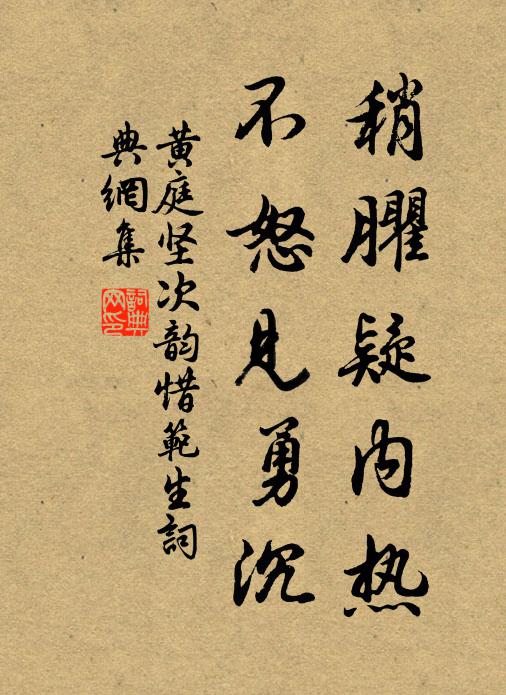 稍臞疑内热
不怒见勇沉
黄庭坚次韵惜範生詞
典網集
詞典網印